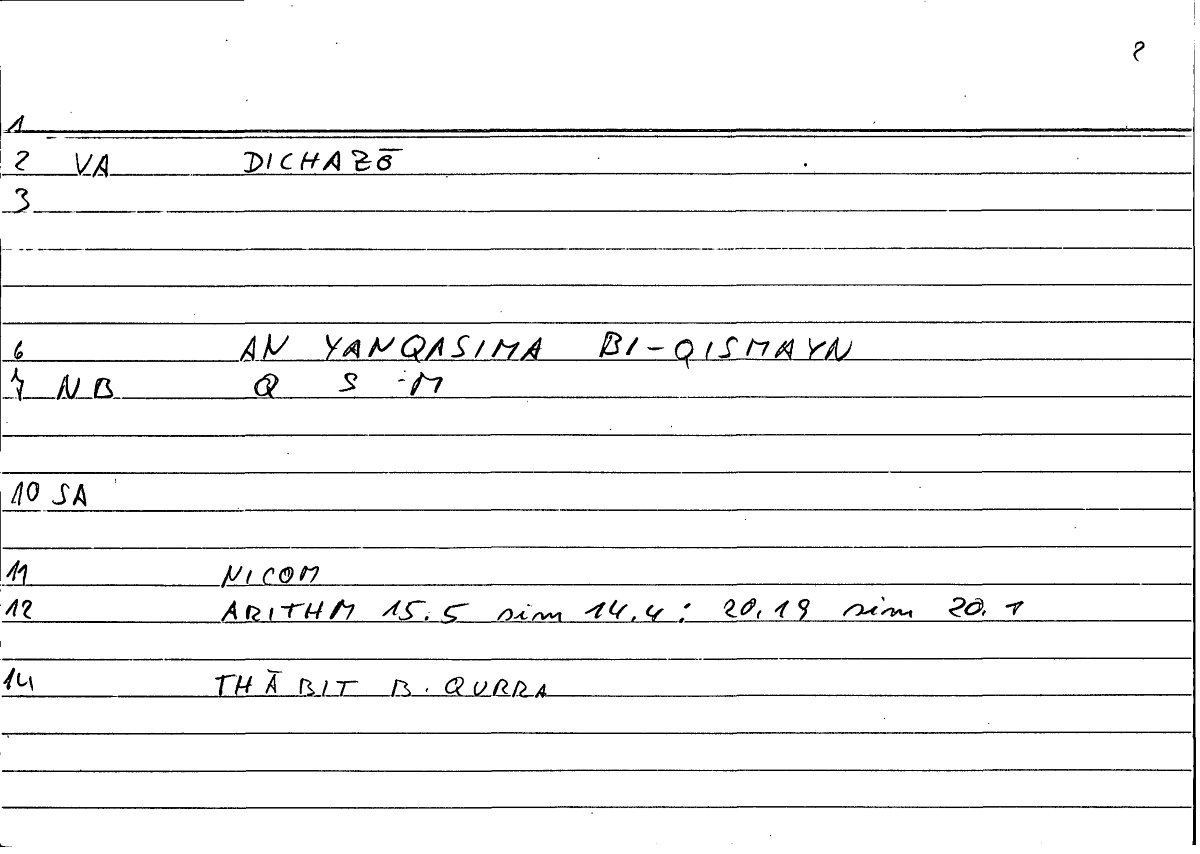 2
1
2 VA DICHAZŌ
3
6 AN YANQASIMA BI-QISMAYN
7 NB Q S M
10 SA
11 NICOM
12 ARITHM 15.5 sim 14.4: 20.19 sim 20.1
14 THĀBIT B. QURRA